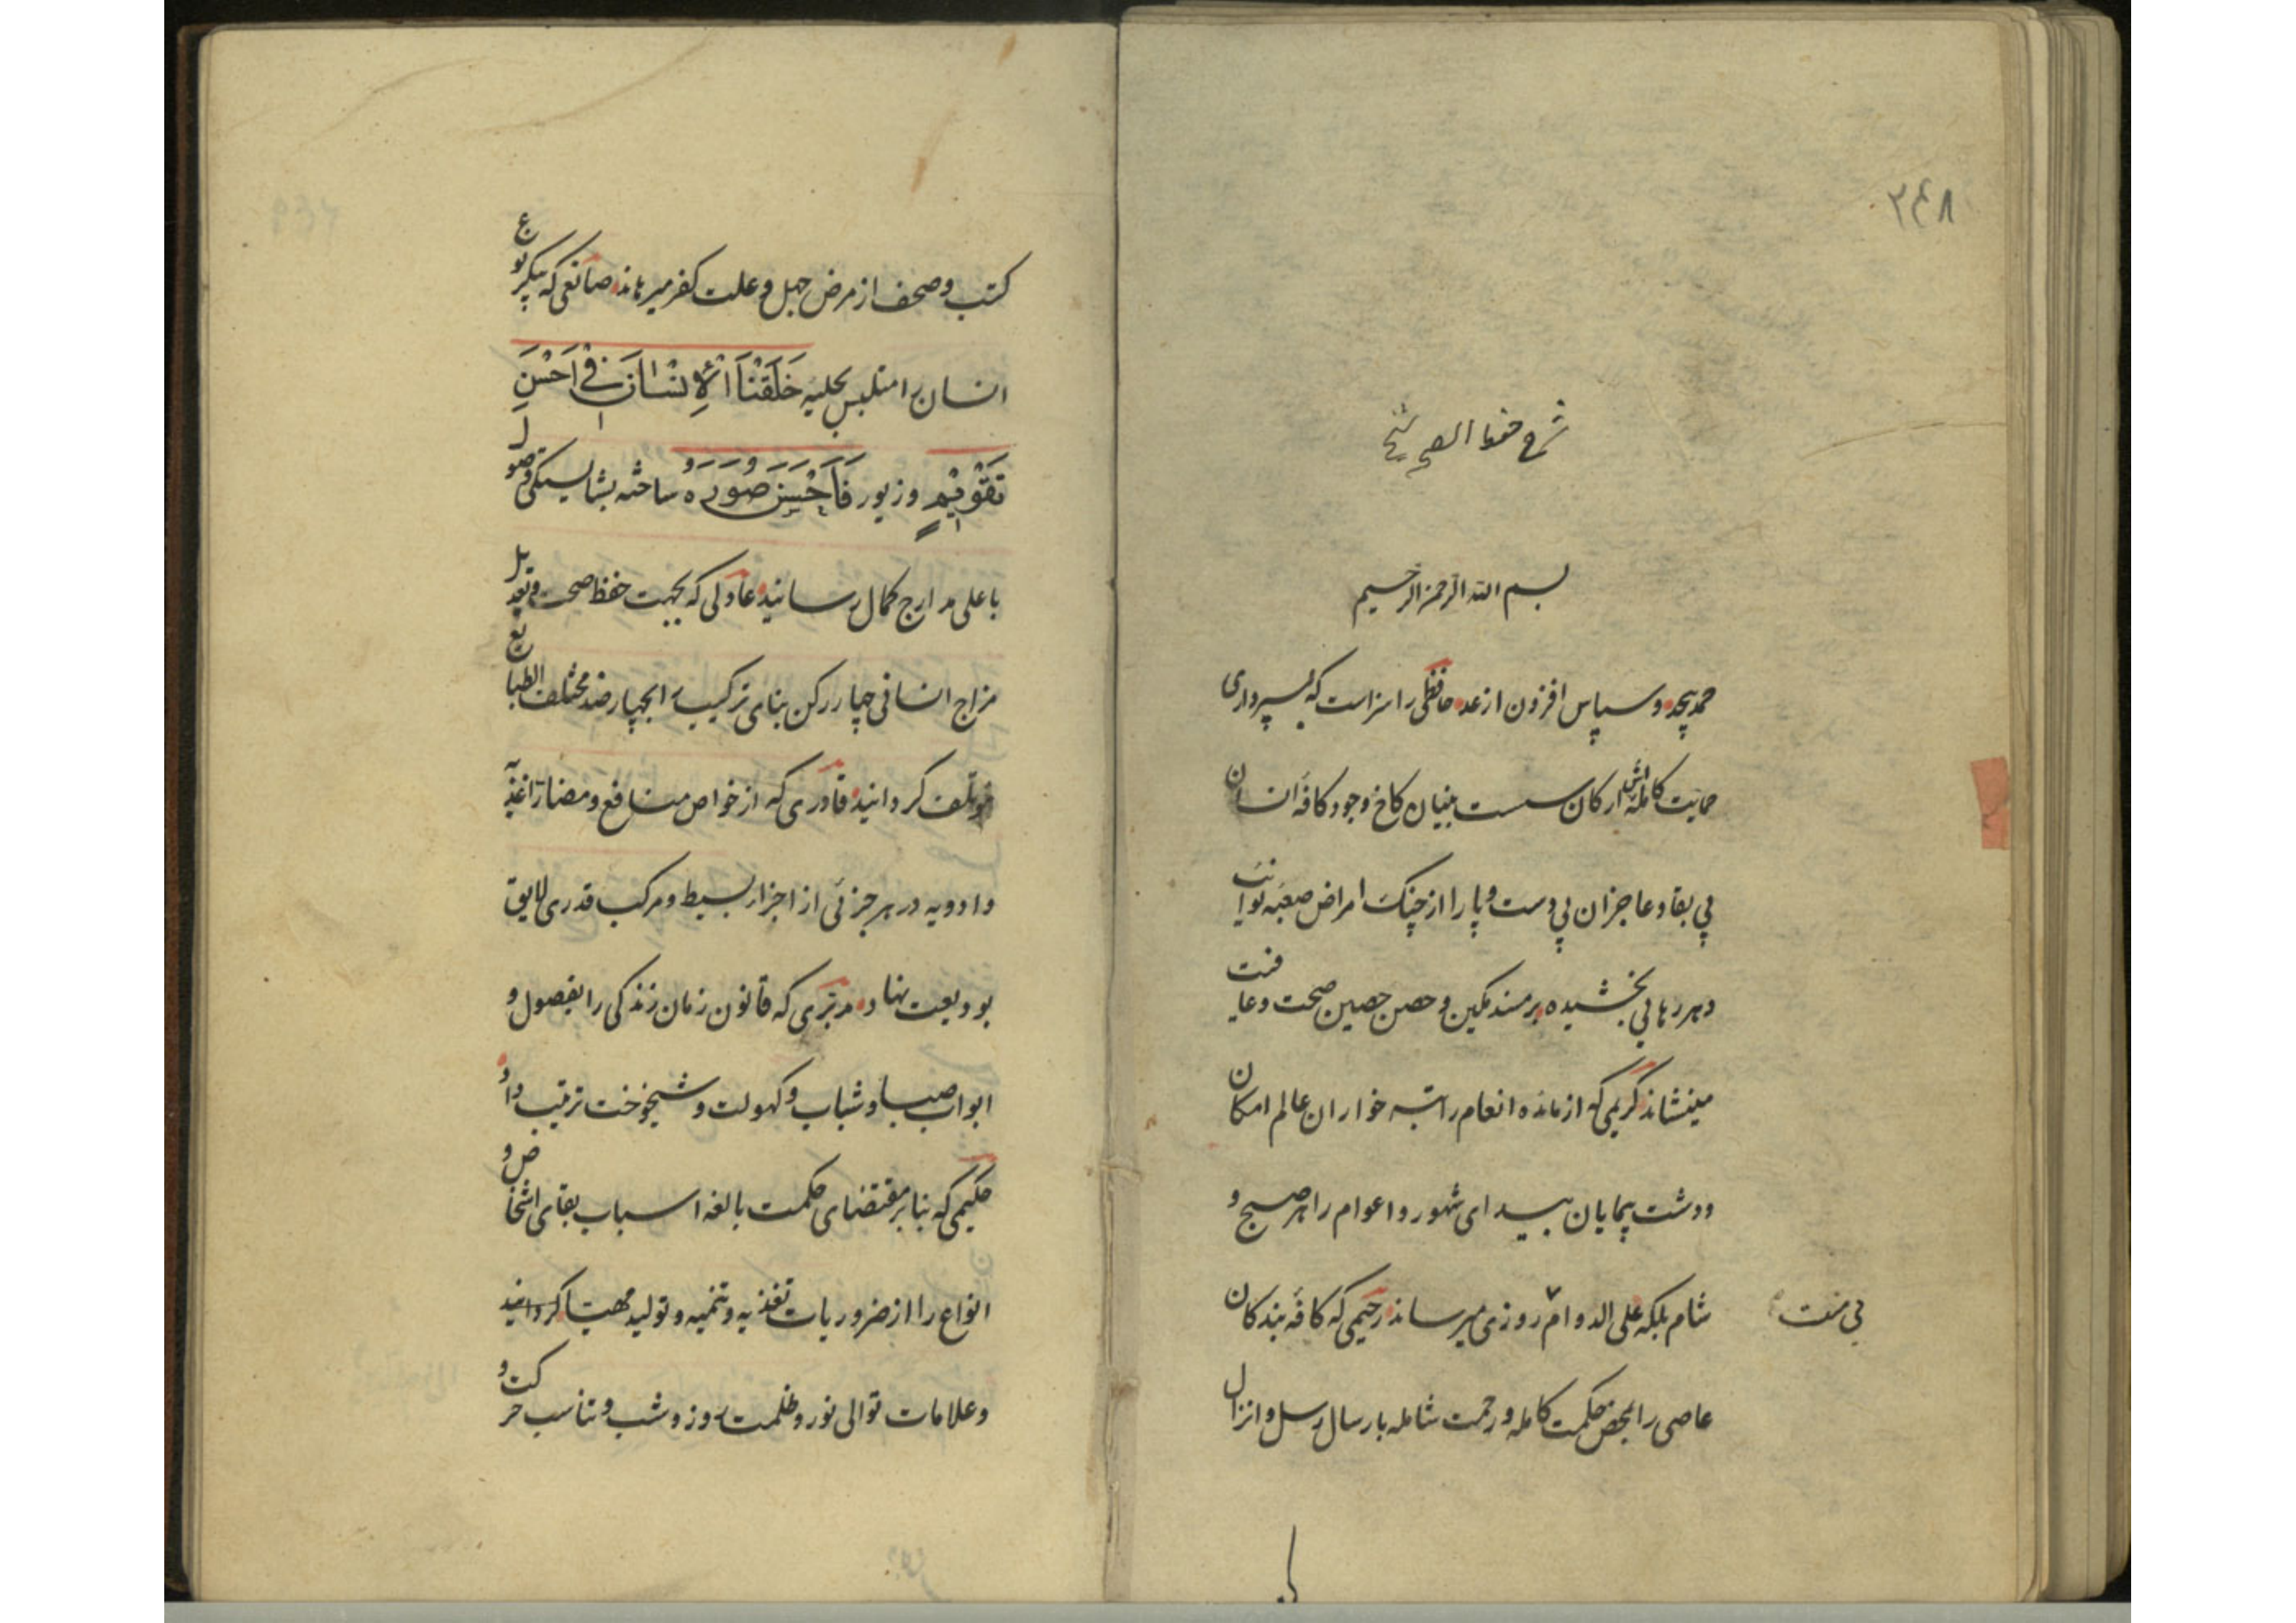 ۲۴۸
شرح حفظ الصحی شیخ
بسم الله الرحمن الرحیم
حمد بیحد و سپاس افزون از عد حافظی را سزاست که بسپرداری
حمایت کامله‌اش ارکان سست بنیان کاخ وجود کافه انسان
بی بقا و عاجزان بی دست و پا را از چنک امراض صعبه نوایب
دهر رهایی بخشیده بر مسند تمکین و حصن حصین صحت و عافیت
مینشاند کریمی که از مائده انعام راتبه خواران عالم امکان
و دشت پیمایان بیدای شهور و اعوام را هر صبح و
شام بلکه علی الدوام روزی میرساند رحیمی که کافه بندکان
بی منت
عاصی را بمحض حکمت کامله و رحمت شامله بارسال رسل و انزال
کتب و صحف از مرض جهل و علت کفر میرهاند صانعی که پیکر نوع
انسان را متلبس بحلیه خَلَقْنَا الْاِنْسَانَ فِی اَحْسَنِ
تَقْوِیْمٍ و زیور فَاَحْسَنَ صُوَرَه ساخته بشایستکی وصول
باعلی مدارج کمال رسانید عادلی که بجهت حفظ صحت و تعدیل
مزاج انسانی چهار رکن بنای ترکیب را بچهار ضد مختلف الطبایع
مؤتلف کردانید قادری که از خواص منافع و مضار اغذیه
و ادویه در هر جزئی از اجزاء بسیط و مرکب قدری لایق
بودیعت نهاد مدبری که قانون زمان زندکی را بفصول و
ابواب صبا و شباب و کهولت و شیخوخت ترتیب داد
حکیمی که بنا بر مقتضای حکمت بالغه اسباب بقای اشخاص و
انواع را از ضروریات تغذیه و تنمیه و تولید مهیا کردانید
و علامات توالی نور و ظلمت روز و شب و تناسب حرکت و